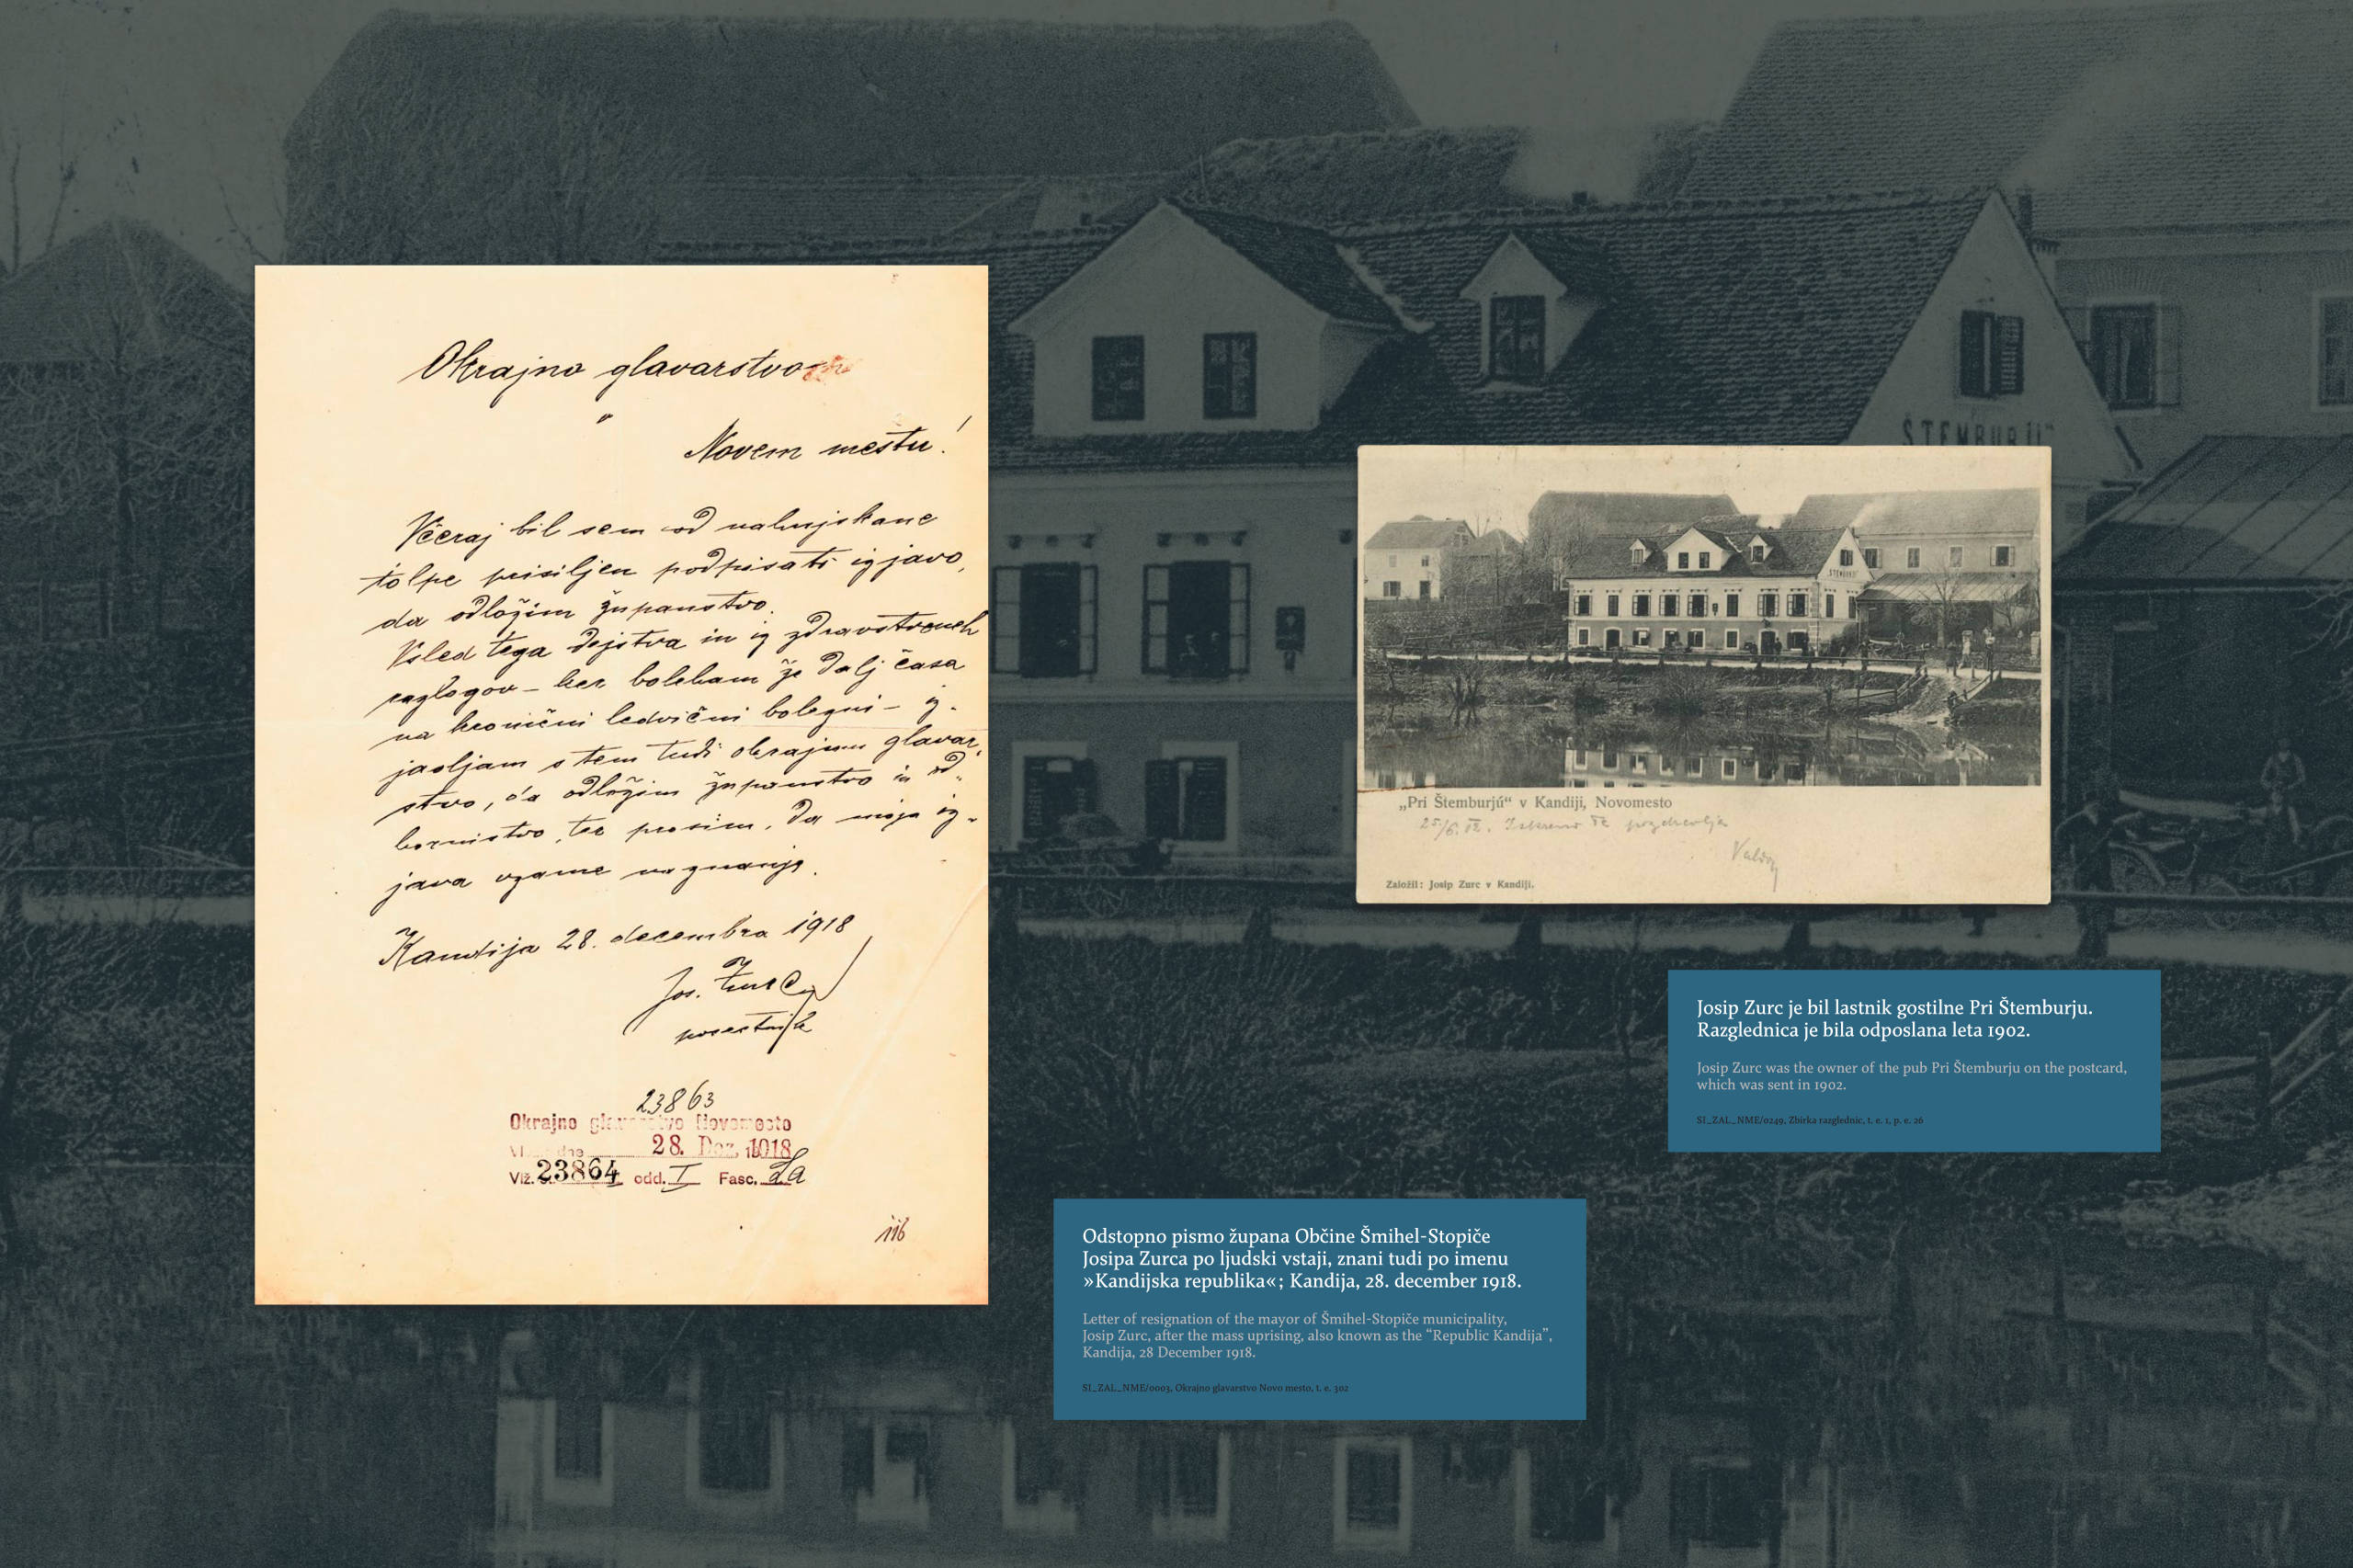 Okrajno glavarstvo
v
Novem mestu!
Včeraj bil sem od nahujskane
tolpe prisiljen podpisati izjavo,
da odložim županstvo.
Vsled tega dejstva in iz zdravstvenih
razlogov – ker boleham že dalj časa
na kronični ledvični bolezni – iz-
javljam s tem tudi okrajnemu glavar-
stvo, da odložim županstvo in od-
borništvo, ter prosim, da moja iz-
java vzame na znanje.
Kandija 28. decembra 1918
Jos. Zurc
posestnik
23863
Okrajno glavarstvo Novomesto
dne 28. Dez. 1918
Vlž. 23864 odd. I Fasc. La
116
ŠTEMBURJU"
ŠTEMBURJU
„Pri Štemburjú“ v Kandiji, Novomesto
25/6. 02. Iskreno te pozdravlja
Založil: Josip Zurc v Kandiji.
Josip Zurc je bil lastnik gostilne Pri Štemburju.
Razglednica je bila odposlana leta 1902.
Josip Zurc was the owner of the pub Pri Štemburju on the postcard,
which was sent in 1902.
SI_ZAL_NME/0249, Zbirka razglednic, t. e. 1, p. e. 26
Odstopno pismo župana Občine Šmihel-Stopiče
Josipa Zurca po ljudski vstaji, znani tudi po imenu
»Kandijska republika«; Kandija, 28. december 1918.
Letter of resignation of the mayor of Šmihel-Stopiče municipality,
Josip Zurc, after the mass uprising, also known as the “Republic Kandija”,
Kandija, 28 December 1918.
SI_ZAL_NME/0003, Okrajno glavarstvo Novo mesto, t. e. 302